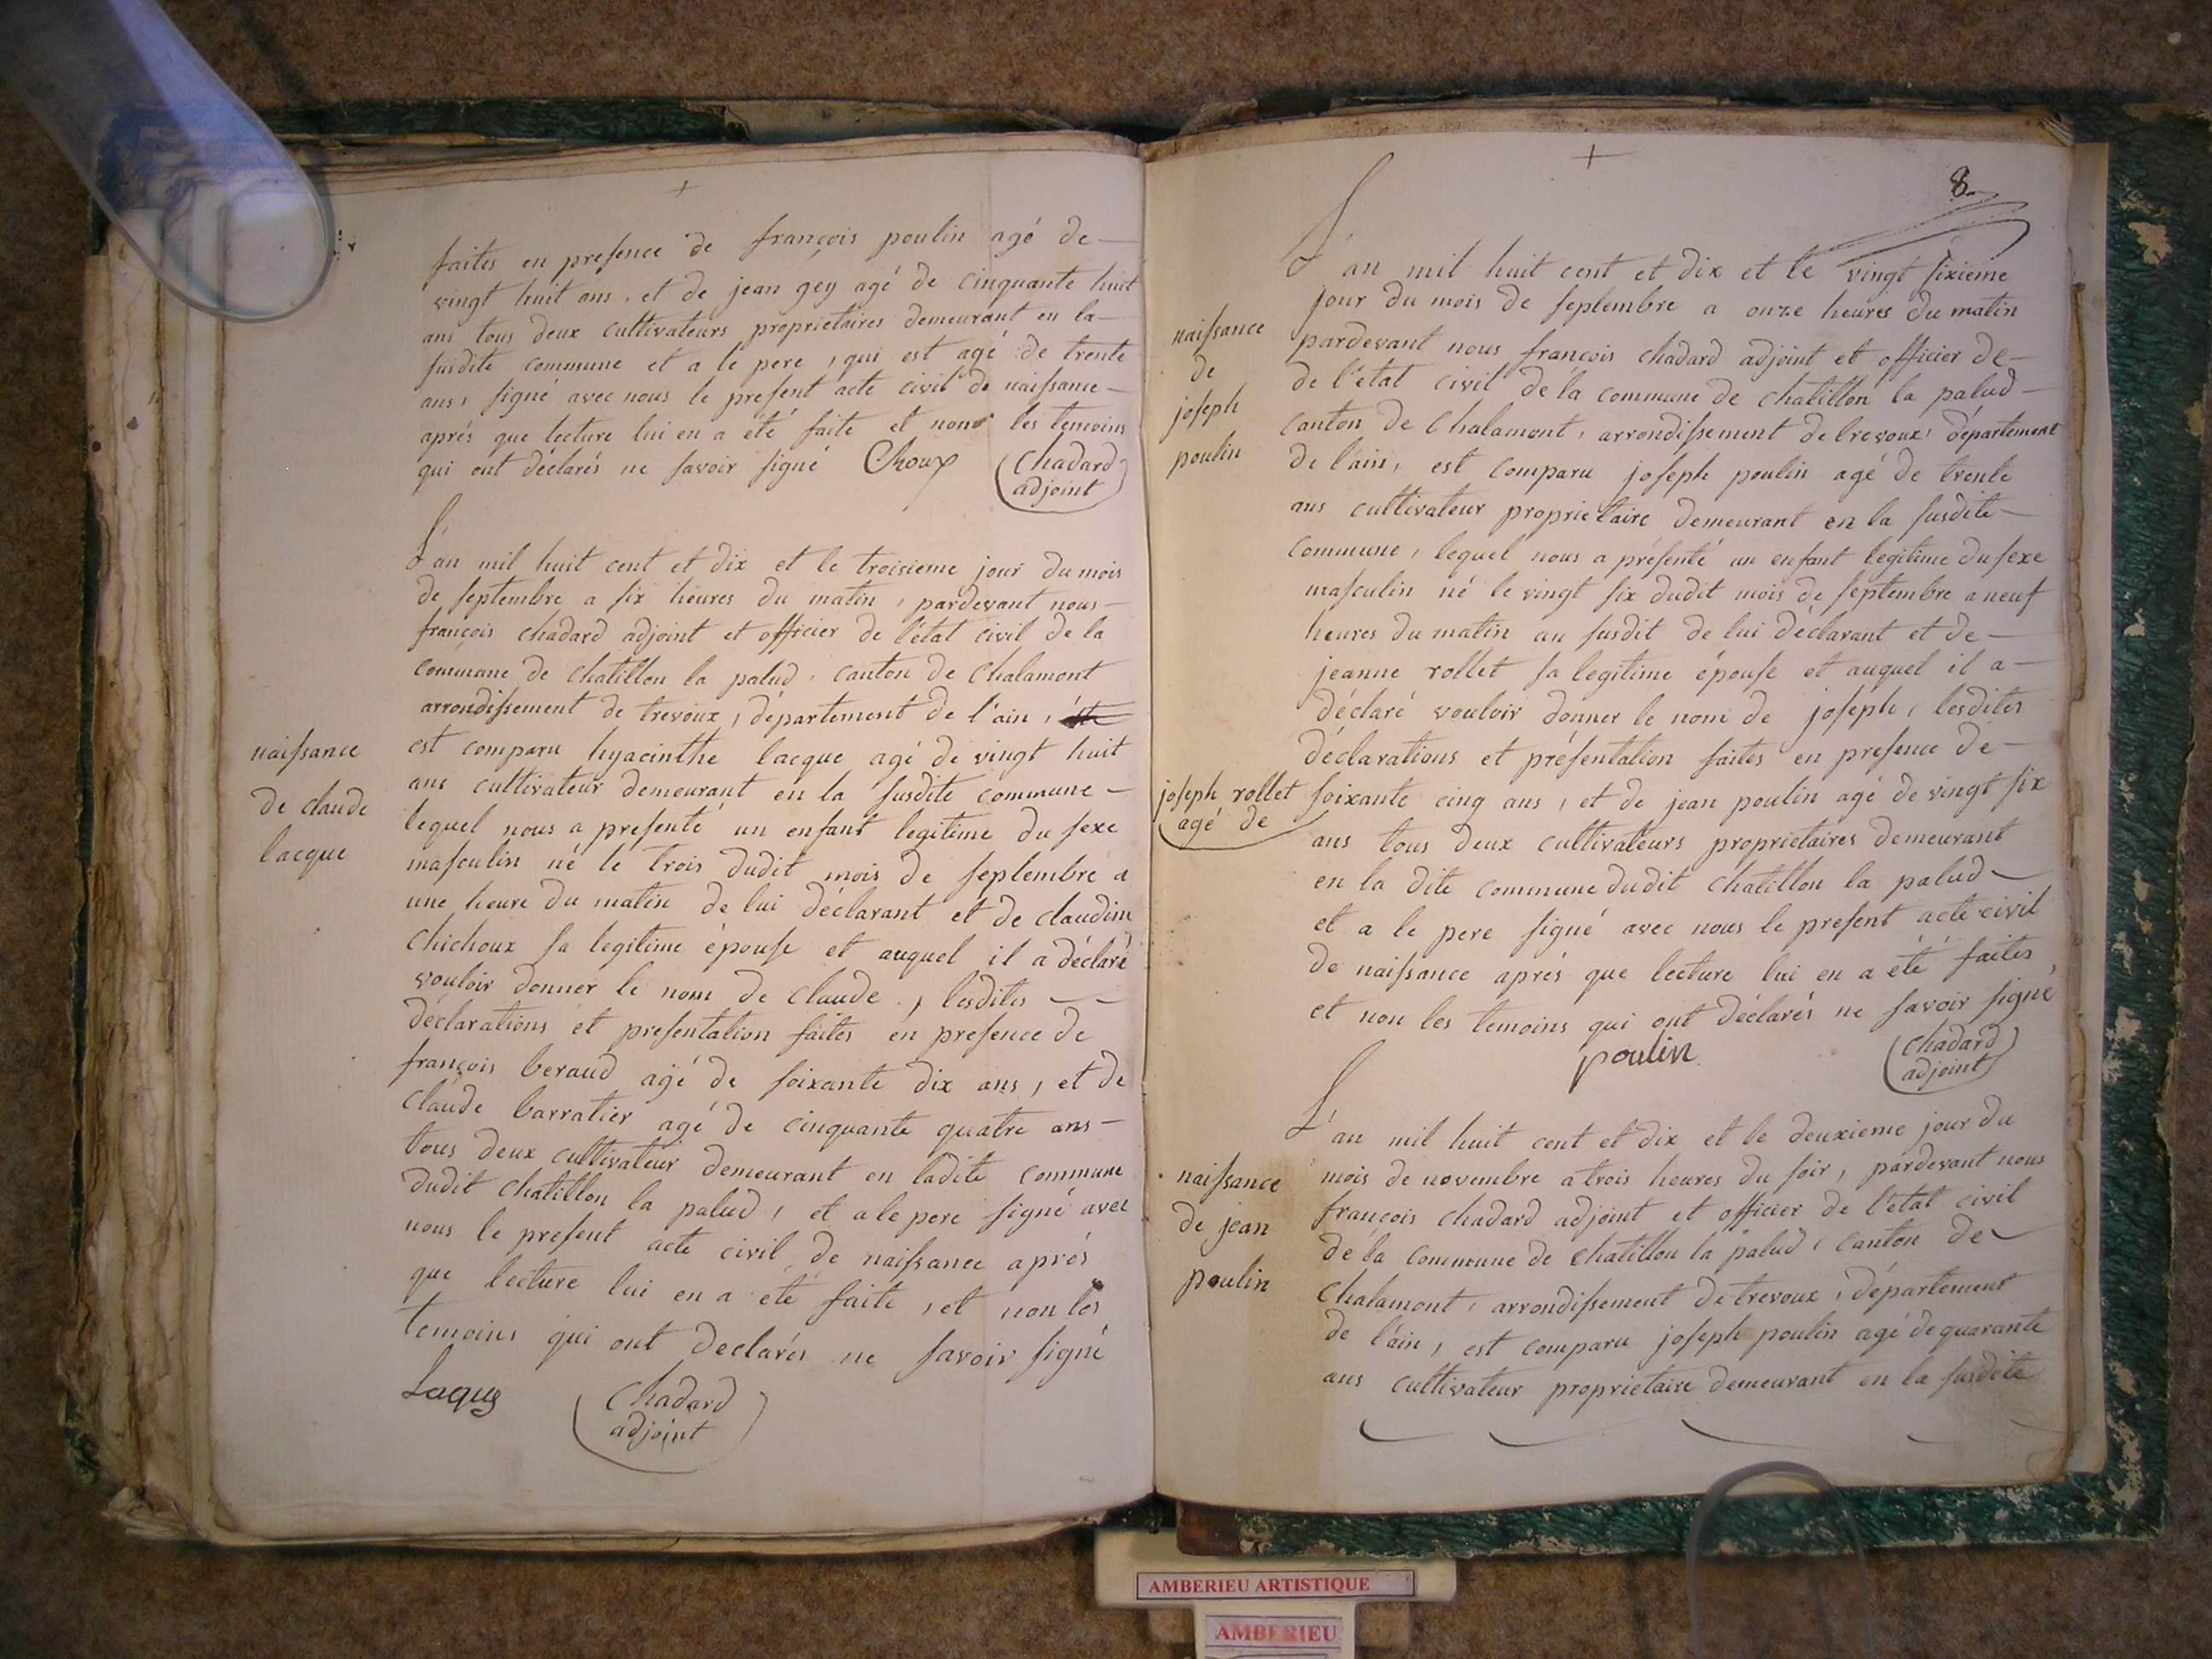 faites en presence de françois poulin agé de
vingt huit ans, et de jean gey agé de cinquante huit
ans tous deux cultivateurs proprietaires demeurant en la
susdite commune et a le pere, qui est agé de trente
ans, signé avec nous le present acte civil de naissance
aprés que lecture lui en a été faite et non les temoins
qui ont déclarés ne savoir signé Choux Chadard
adjoint
naissance
de claude
lacque
L'an mil huit cent et dix et le troisieme jour du mois
de septembre a six heures du matin, pardevant nous
françois chadard adjoint et officier de l'état civil de la
commune de chatillon la palud, canton de Chalamont
arrondissement de trevoux, département de l'ain,
est comparu hyacinthe lacque agé de vingt huit
ans cultivateur demeurant en la susdite commune
lequel nous a presenté un enfant legitime du sexe
masculin né le trois dudit mois de septembre a
une heure du matin de lui déclarant et de claudine
Chichoux sa legitime épouse et auquel il a déclaré
vouloir donner le nom de Claude, lesdites
déclarations et presentation faites en presence de
françois beraud agé de soixante dix ans, et de
claude barratier agé de cinquante quatre ans
tous deux cultivateur demeurant en ladite commune
dudit chatillon la palud, et a le pere signé avec
nous le present acte civil de naissance aprés
que lecture lui en a été faite, et non les
temoins qui ont declarés ne savoir signé
Laque Chadard
adjoint
8
naissance
de
joseph
poulin
L'an mil huit cent et dix et le vingt sixieme
jour du mois de septembre a onze heures du matin
pardevant nous françois chadard adjoint et officier de
de l'état civil de la commune de chatillon la palud
canton de Chalamont, arrondissement de trevoux, département
de l'ain, est comparu joseph poulin agé de trente
ans cultivateur proprietaire demeurant en la susdite
commune, lequel nous a présenté un enfant legitime du sexe
masculin né le vingt six dudit mois de septembre a neuf
heures du matin au susdit de lui déclarant et de
jeanne rollet sa legitime épouse et auquel il a
déclaré vouloir donner le nom de joseph, lesdites
déclarations et présentation faites en presence de
joseph rollet
agé de
soixante cinq ans, et de jean poulin agé de vingt six
ans tous deux cultivateurs proprietaires demeurant
en la dite commune dudit chatillon la palud
et a le pere signé avec nous le present acte civil
de naissance aprés que lecture lui en a été faites
et non les temoins qui ont déclarés ne savoir signé
poulin Chadard
adjoint
naissance
de jean
poulin
L'an mil huit cent et dix et le deuxieme jour du
mois de novembre a trois heures du soir, pardevant nous
françois chadard adjoint et officier de l'état civil
de la commune de chatillon la palud, canton de
Chalamont, arrondissement de trevoux, département
de l'ain, est comparu joseph poulin agé de quarante
ans cultivateur proprietaire demeurant en la susdite
AMBERIEU ARTISTIQUE
AMBERIEU